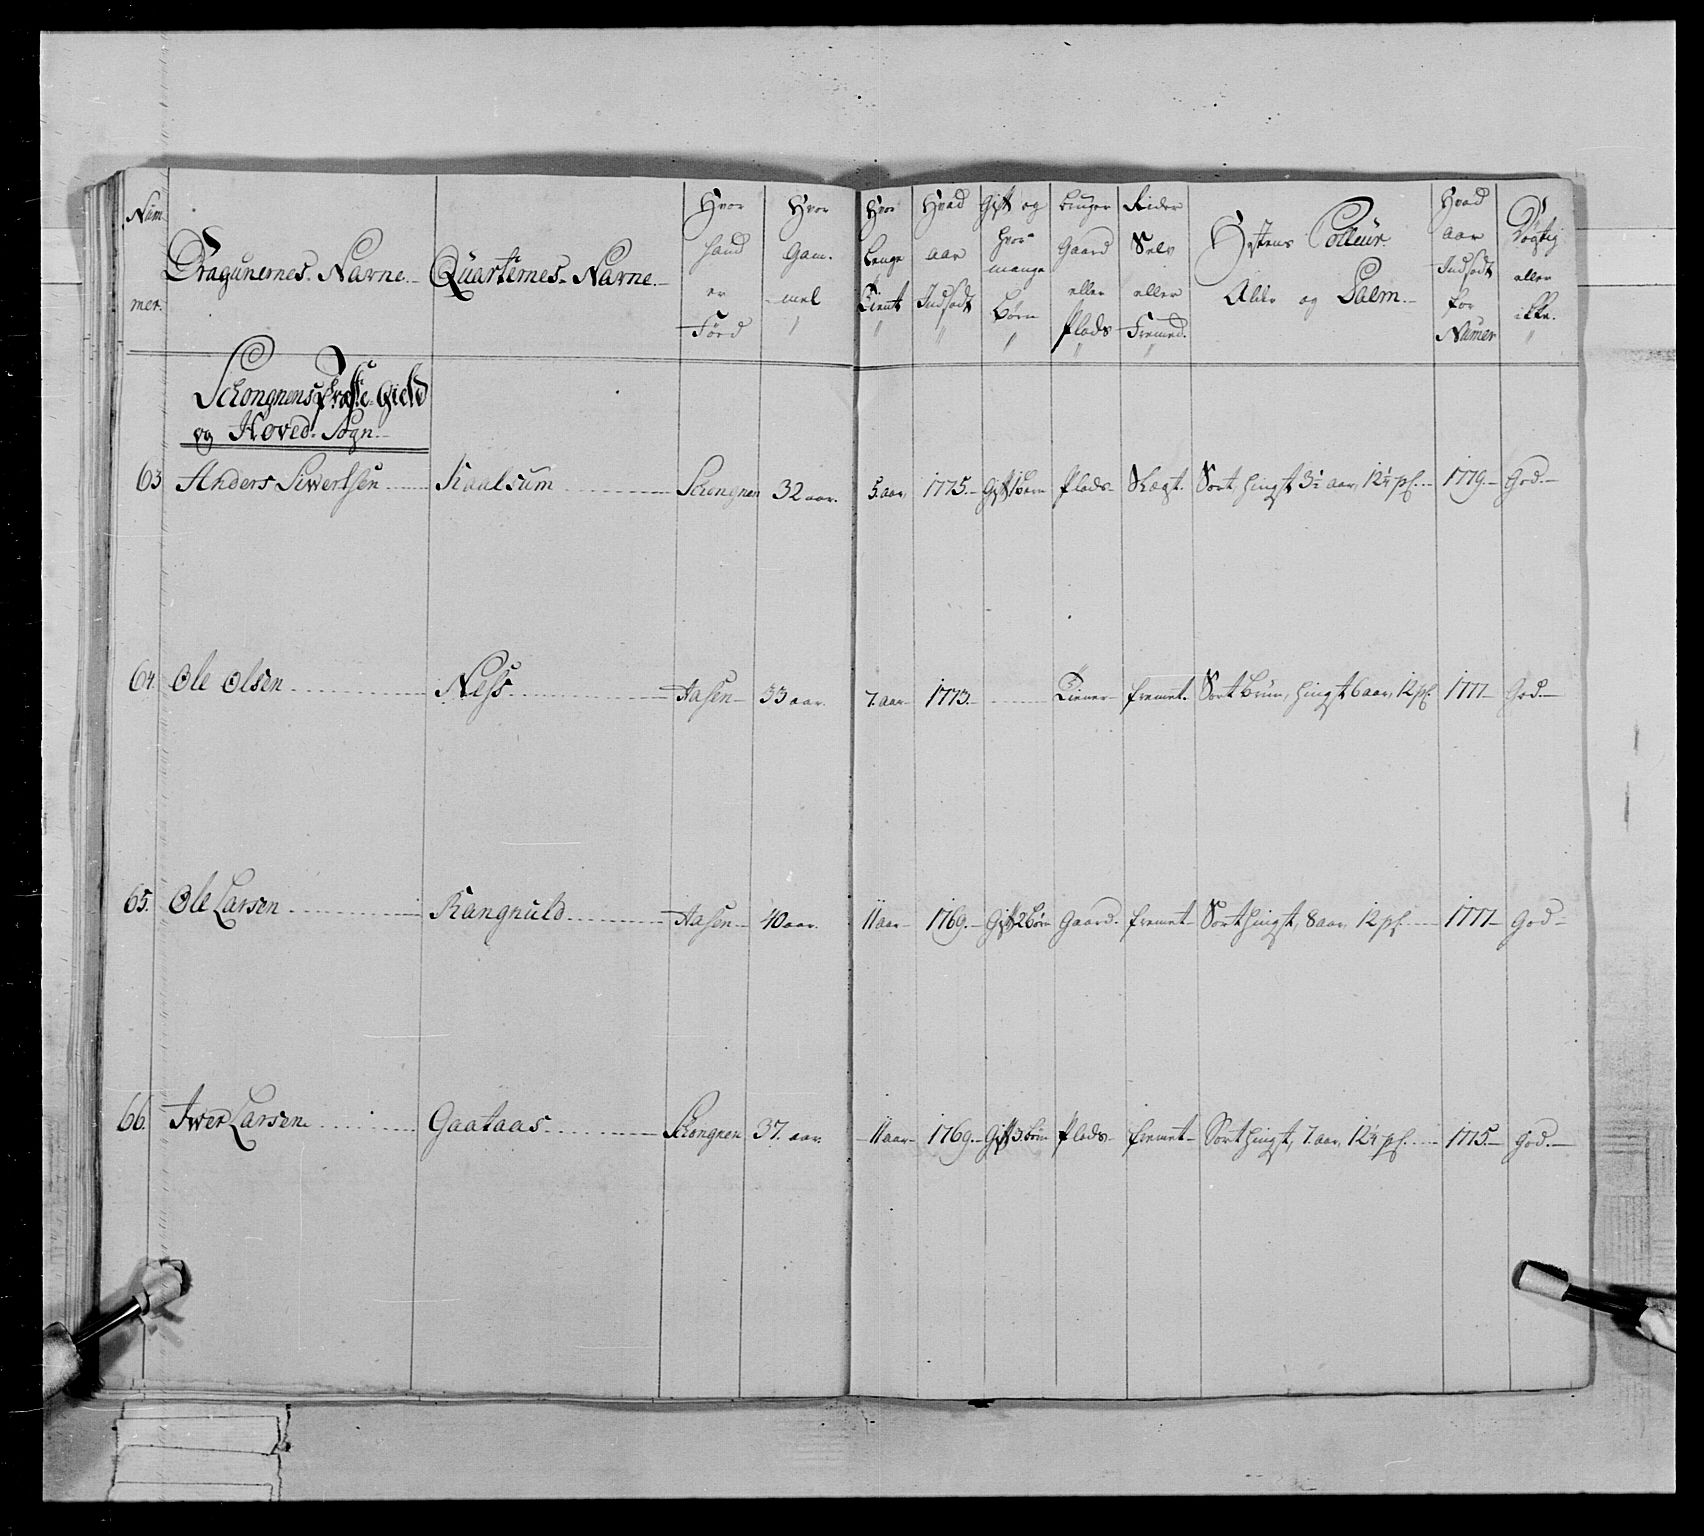 Num-
mer.
Dragunernes Navne.
Quarternes Navne.
Hvor
hand
er
Förd
Hvor
Gam-
mel
Hvor
Lenge
Tient
Hvad
aar
Indsadt
Gift og
hvor
mange
Börn
Bruger
Gaard
eller
Plads
Rider
Selv
eller
Fremed.
Hestens Colleur
Alder og Palm.
Hvad
aar
Indsadt
for
Numer
Dögtig
eller
ikke.
Schongnens Præste-Gield
og Hoved-Sogn.
63 Anders Siwertsen Kaalsum Schongnen 32 aar. 5. aar. 1775. Gift 1 Börn Plads Skagt. Sort hingst 3½ aar, 12¼ pl. 1779. God.
64. Ole Olsen Ness Aasen 33 aar. 7. aar 1773. Tiener fremet. Sort Brun, hingst 6 aar, 12 pl. 1777 God.
65. Ole Larsen Rangnuld Aasen 40 aar. 11 aar 1769. Gift 2 Börn Gaard. fremet Sort hingst, 8 aar, 12 pl. 1777 God
66. Iwer Larsen Gaataas Schongnen 37. aar. 11 aar 1769. Gift 3. Börn Plads fremet Sort hingst, 7. aar, 12¼ pl. 1775. God.